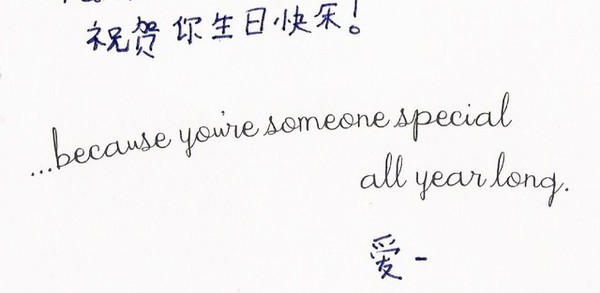 祝贺你生日快乐!
...because you're someone special
all year long.
爱-